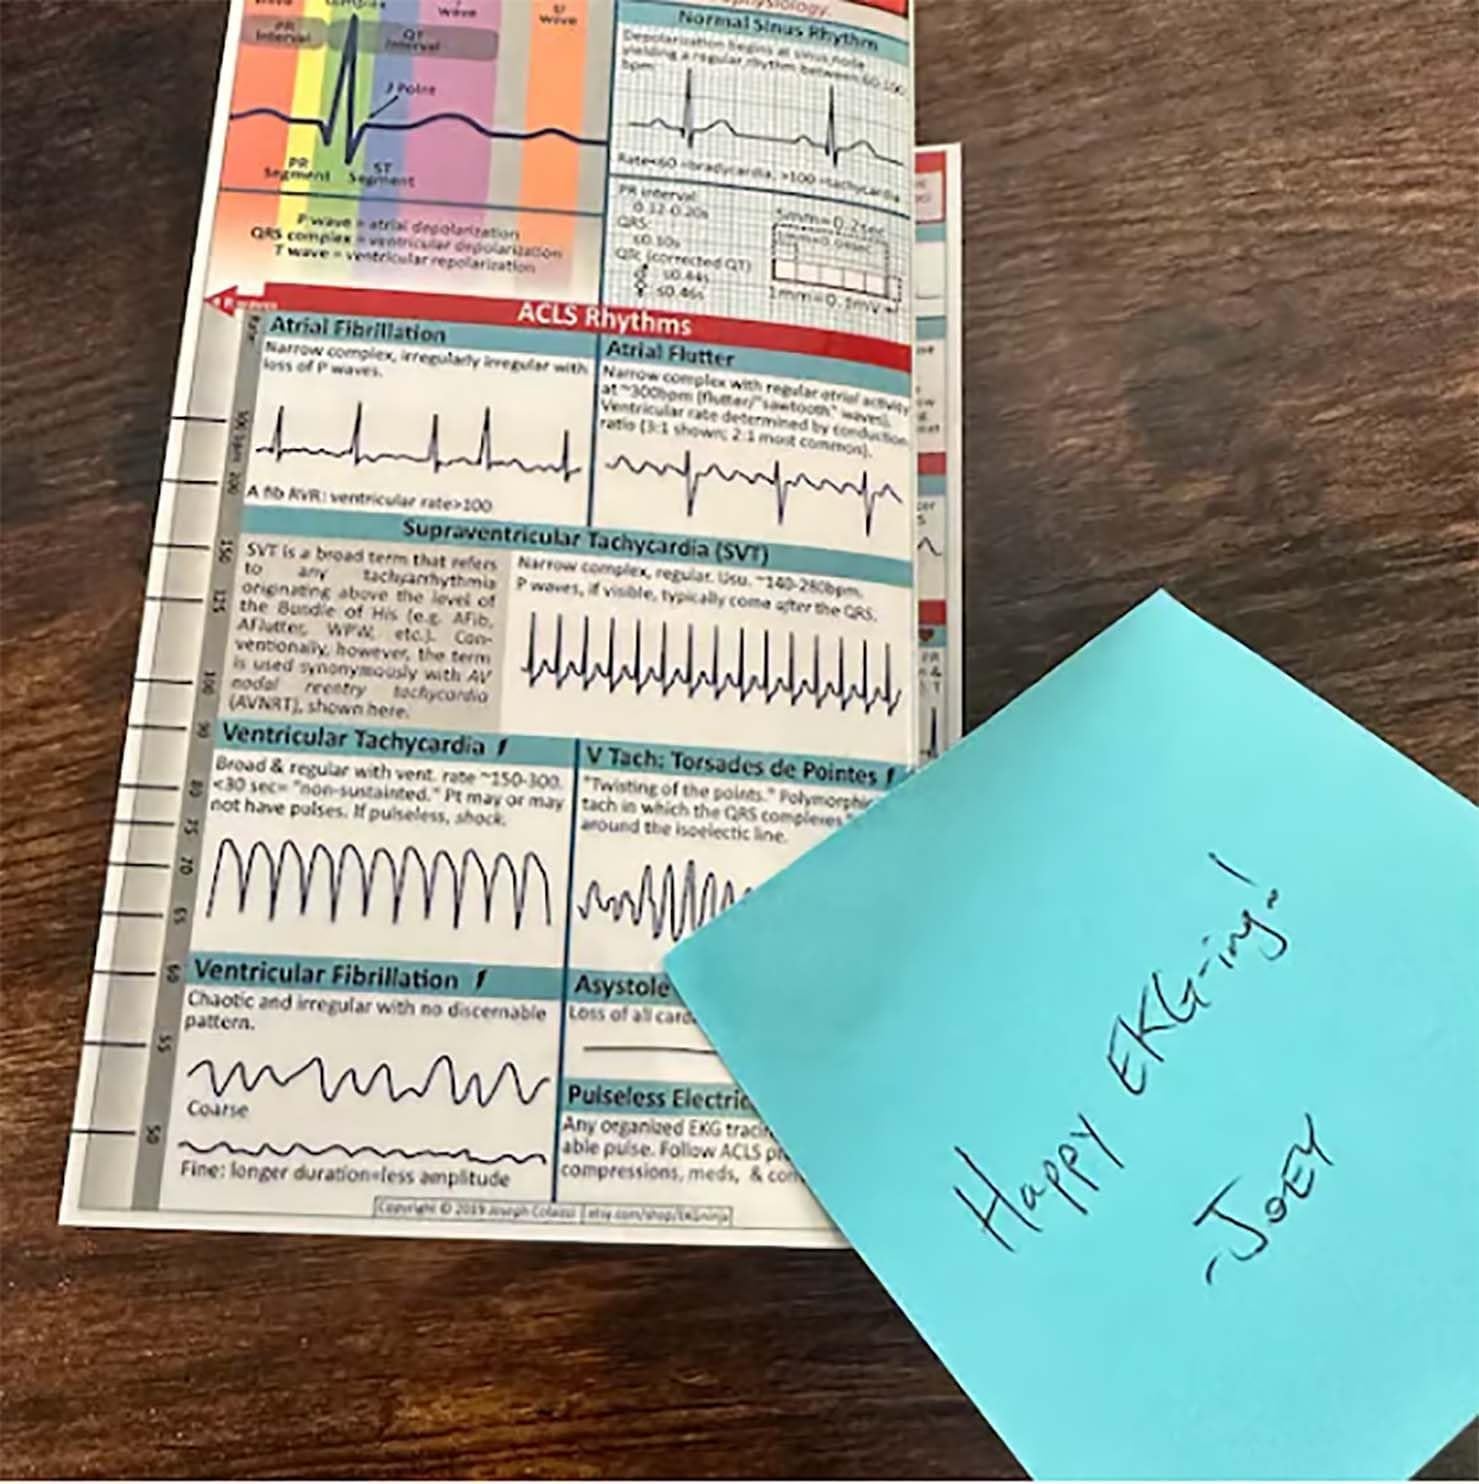 wave
complex
wave
U
wave
PR
Interval
QT
Interval
J Point
PR
Segment
ST
Segment
P wave = atrial depolarization
QRS complex = ventricular depolarization
T wave = ventricular repolarization
Normal Sinus Rhythm
Depolarization begins at sinus node
yielding a regular rhythm between 60-100
bpm
Rate<60 =bradycardia; >100 =tachycardia
PR interval:
0.12-0.20s
QRS:
≤0.10s
QTc (corrected QT)
♂ ≤0.44s
♀ ≤0.46s
5mm=0.2sec
1mm=0.04sec
1mm=0.1mV
ACLS Rhythms
Atrial Fibrillation
Narrow complex, irregularly irregular with
loss of P waves.
A fib RVR: ventricular rate>100
Atrial Flutter
Narrow complex with regular atrial activity
at ~300bpm (flutter/"sawtooth" waves).
Ventricular rate determined by conduction
ratio (3:1 shown; 2:1 most common).
Supraventricular Tachycardia (SVT)
SVT is a broad term that refers
to any tachyarrhythmia
originating above the level of
the Bundle of His (e.g. AFib,
AFlutter, WPW, etc.). Con-
ventionally, however, the term
is used synonymously with AV
nodal reentry tachycardia
(AVNRT), shown here.
Narrow complex, regular. Usu. ~140-280bpm.
P waves, if visible, typically come after the QRS.
Ventricular Tachycardia
Broad & regular with vent. rate ~150-300.
<30 sec= "non-sustainted." Pt may or may
not have pulses. If pulseless, shock.
V Tach: Torsades de Pointes
"Twisting of the points." Polymorphic
tach in which the QRS complexes
around the isoelectic line.
Ventricular Fibrillation
Chaotic and irregular with no discernable
pattern.
Coarse
Fine: longer duration=less amplitude
Asystole
Loss of all card
Pulseless Electric
Any organized EKG tracin
able pulse. Follow ACLS pr
compressions, meds, & con
Copyright © 2019 Joseph Colassi | etsy.com/shop/EKGninja
300 bpm
200
150
125
100
90
80
75
70
65
60
55
50
Happy EKG-ing!
-JOEY